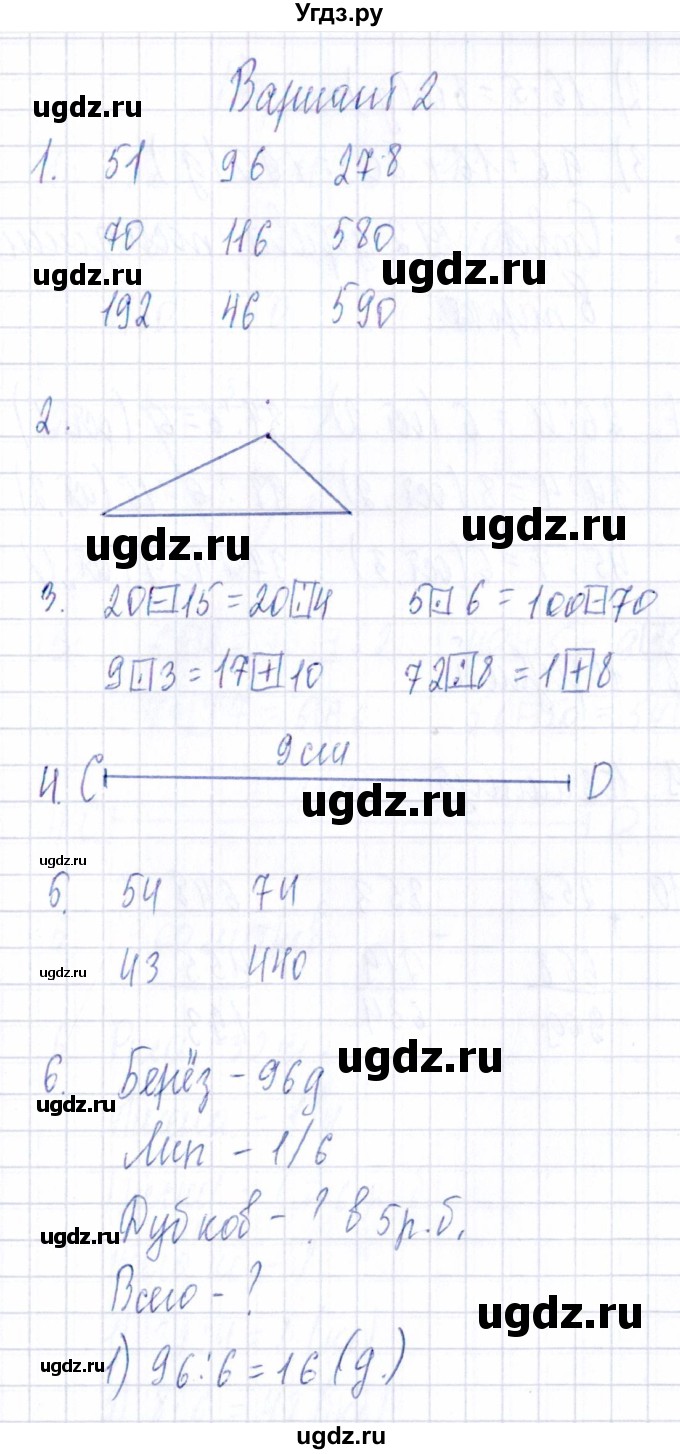 Угдз.ру
Вариант 2
ugdz.ru
1. 51 96 278
70 116 580
ugdz.ru
ugdz.ru
192 46 590
2.
ugdz.ru
ugdz.ru
3. 20-15=20:4 5·6=100-70
9·3=17+10 72:8=1+8
9 см
4. C D
ugdz.ru
ugdz.ru
5. 54 74
43 440
ugdz.ru
ugdz.ru
6. Берёз - 96д
ugdz.ru
Лип - 1/6
Дубков - ? в 5р.б.
ugdz.ru
Всего - ?
ugdz.ru
1) 96:6=16 (д.)
ugdz.ru
ugdz.ru